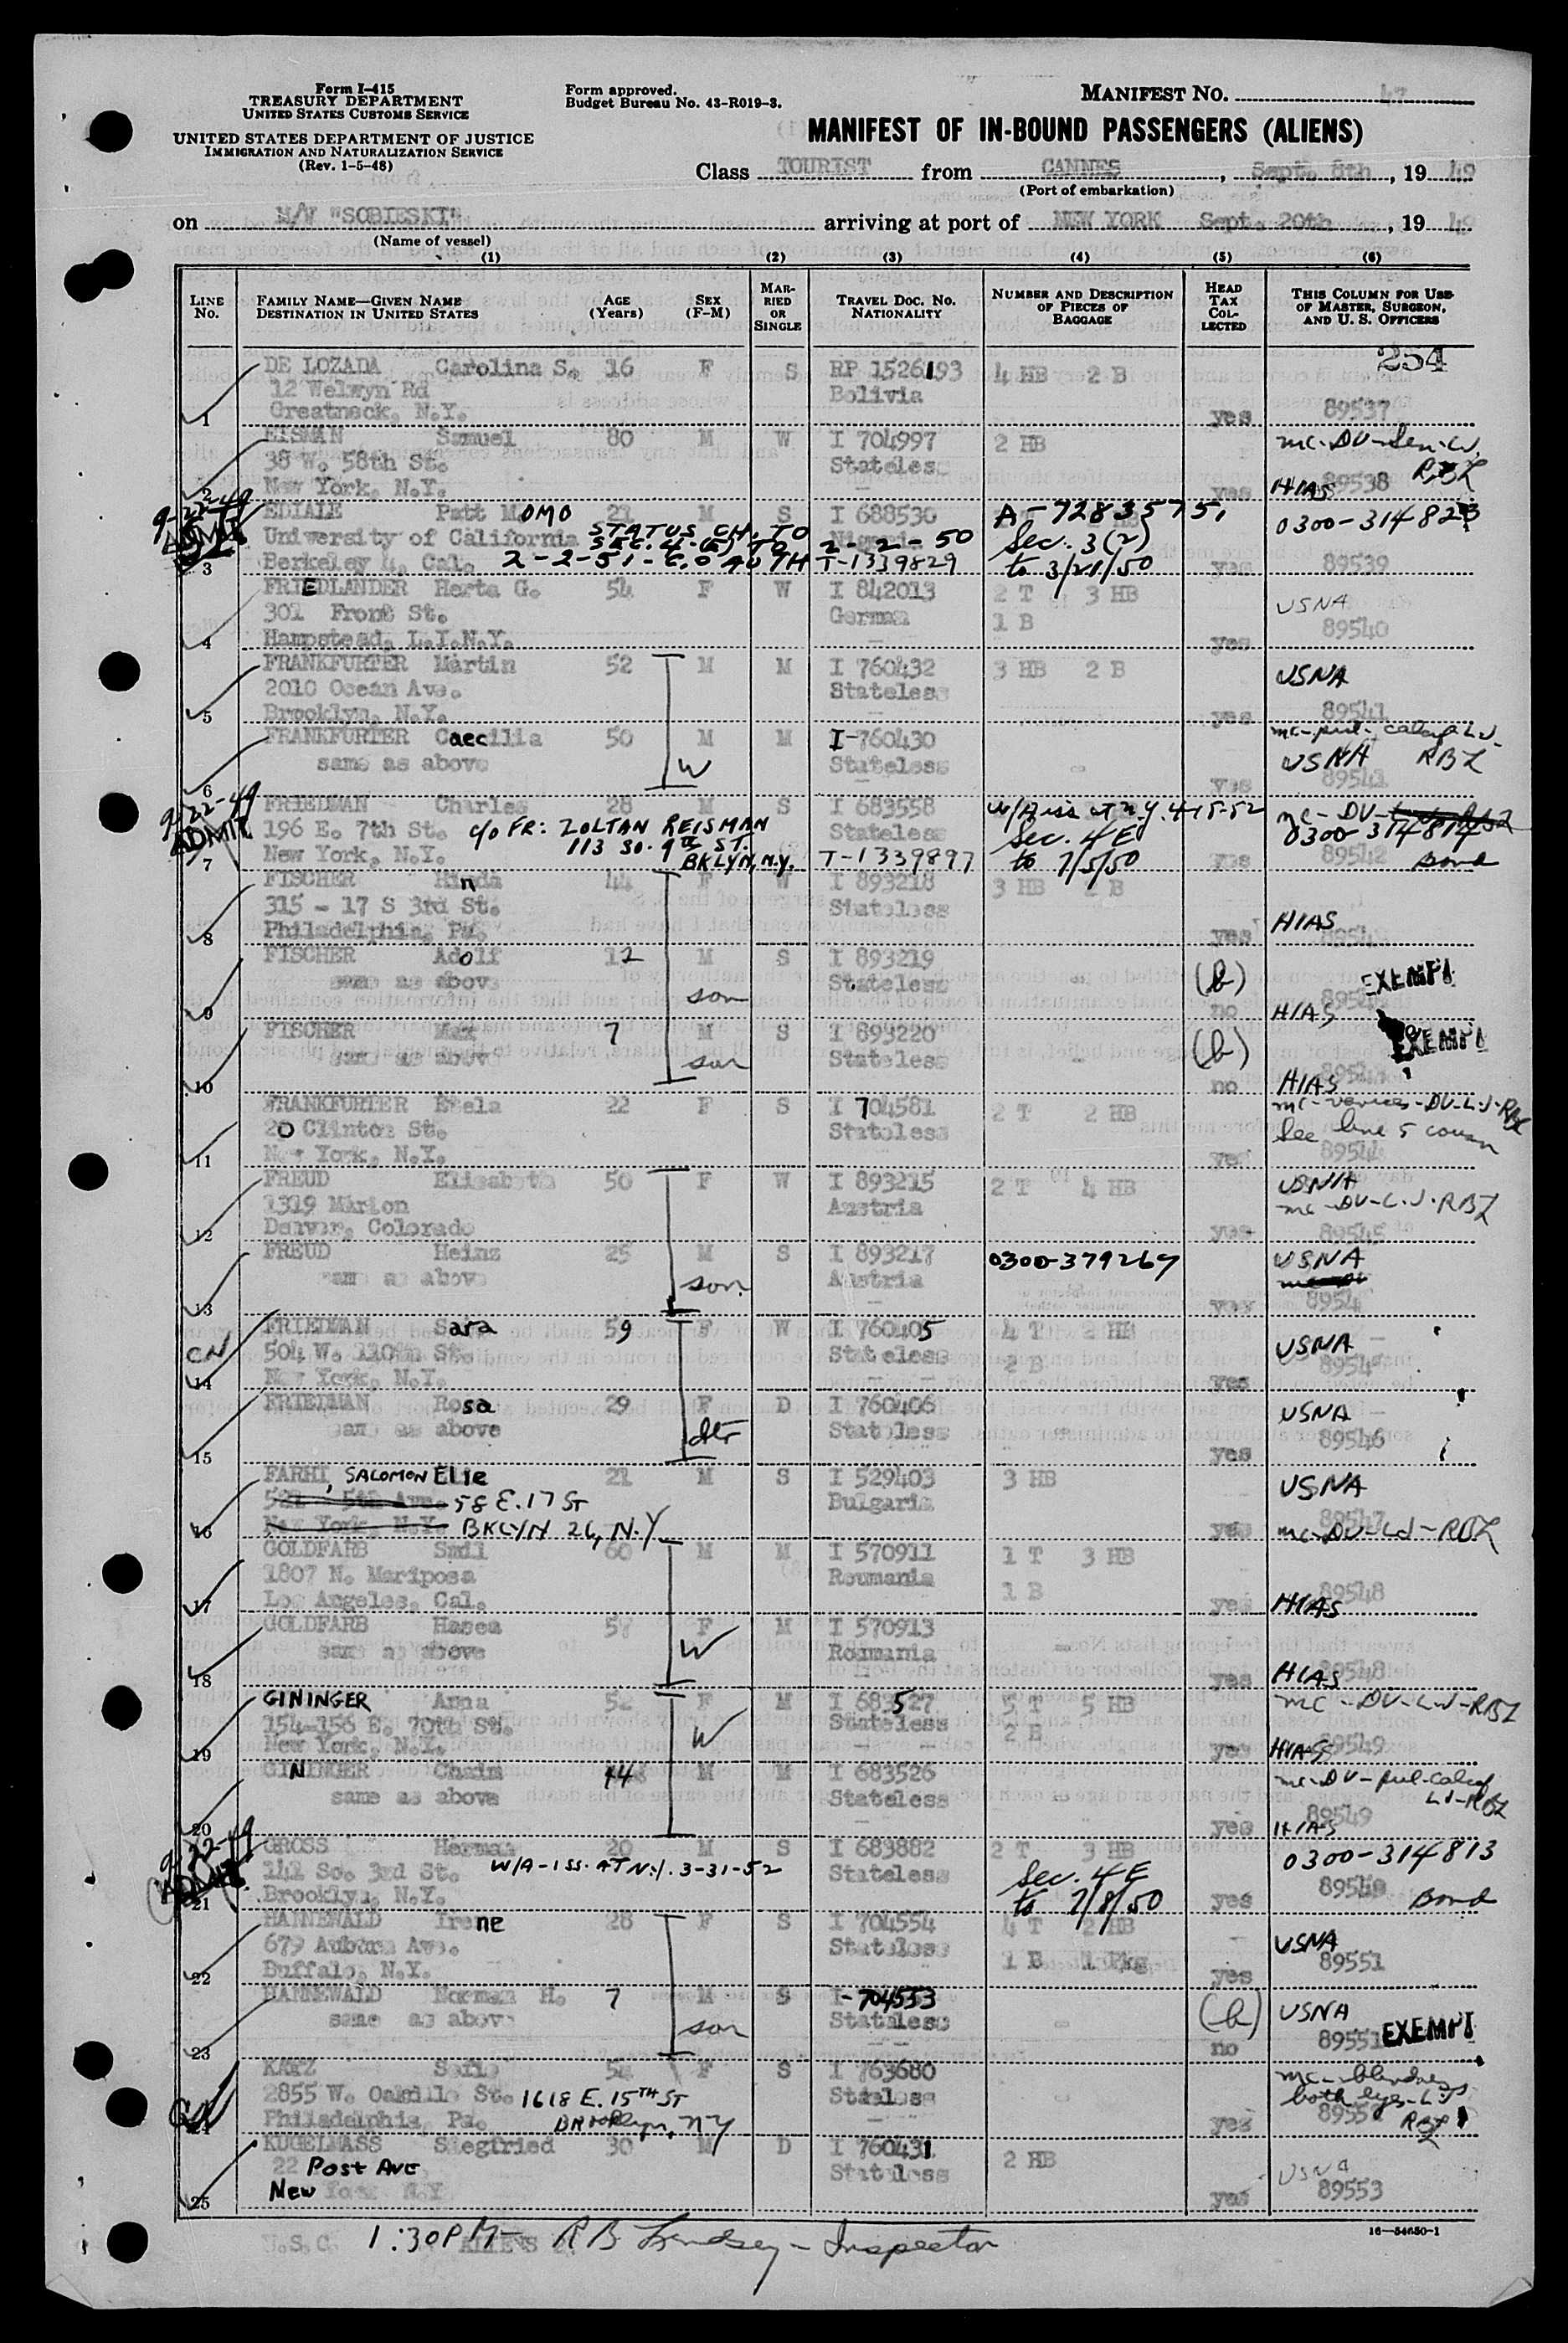 Form I-415
TREASURY DEPARTMENT
UNITED STATES CUSTOMS SERVICE
UNITED STATES DEPARTMENT OF JUSTICE
IMMIGRATION AND NATURALIZATION SERVICE
(Rev. 1-5-48)
Form approved.
Budget Bureau No. 43-R019-3.
MANIFEST NO.
MANIFEST OF IN-BOUND PASSENGERS (ALIENS)
Class TOURIST from CANNES, Sept. 8th, 19 49
(Port of embarkation)
on M/V "SOBIESKI" arriving at port of NEW YORK Sept. 20th, 19 49
(Name of vessel)
(1) (2) (3) (4) (5) (6)
LINE NO.
FAMILY NAME—GIVEN NAME DESTINATION IN UNITED STATES
AGE (YEARS)
SEX (F-M)
MARRIED OR SINGLE
TRAVEL DOC. NO. NATIONALITY
NUMBER AND DESCRIPTION OF PIECES OF BAGGAGE
HEAD TAX COLLECTED
THIS COLUMN FOR USE OF MASTER, SURGEON, AND U. S. OFFICERS
254
DE LOZADA Carolina S. 16 F S RP 1526193 4 HB 2 B
12 Welwyn Rd Bolivia
1 Greatneck, N.Y. yes 89537
EISMAN Samuel 80 M W I 704997 2 HB mc-DV-Sen-LJ
38 W. 58th St. Stateless RBL
2 New York, N.Y. yes HIAS 89538
9-22-49 ADMIT
EDIALE Patt MOMO 21 M S I 688530 A-7283575 0300-31482
University of California STATUS CH. TO 2-2-50 Sec. 3(2)
3 Berkeley 4, Cal. 2-2-51-C.O AUTH T-1339829 to 3/21/50 yes 89539
FRIEDLANDER Herta G. 54 F W I 842013 2 T 3 HB USNA
301 Front St. German 1 B
4 Hampstead, L.I.N.Y. yes 89540
FRANKFURTER Martin 52 M M I 760432 3 HB 2 B USNA
2010 Ocean Ave. Stateless
5 Brooklyn, N.Y. yes 89541
FRANKFURTER Caecilia 50 M M I-760430
same as above W Stateless USNA RBL
6 yes 89541
9-22-49 ADMIT
FRIEDMAN Charles 28 M S I 683558 W/A iss at N.Y. 4-15-52 mc-DV-
196 E. 7th St. c/o FR: ZOLTAN REISMAN Stateless Sec. 4E 0300-314814
113 SO. 9th ST.
7 New York, N.Y. BKLYN, N.Y. T-1339897 to 7/5/50 yes 89542 Bond
FISCHER Hinda 44 F W I 893218 3 HB B
315 - 17 S 3rd St. Stateless
8 Philadelphia, Pa. yes HIAS
FISCHER Adolf 12 M S I 893219 (b) EXEMPT
same as above son Stateless
9 no HIAS
FISCHER Max 7 M S I 893220 (b) EXEMPT
same as above son Stateless
10 no HIAS
FRANKFURTER 22 F S I 704581 2 T 2 HB mc-DV-LJ-RBL
20 Clinton St. Stateless See line 5 cousin
11 New York, N.Y. yes
FREUD Elisabeth 50 F W I 893215 2 T 4 HB USNA
1319 Marion Austria mc-DV-L.J.RBL
12 Denver, Colorado yes 89545
FREUD Heinz 25 M S I 893217 0300-379267 USNA
same as above son Austria
13 yes
FRIEDMAN Sara 59 F W I 760405 4 T 2 HB USNA
CN 504 W. 110th St. Stateless 2 B
14 New York, N.Y. yes
FRIEDMAN Rosa 29 F D I 760406 USNA
same as above dtr Stateless
15 yes 89546
FARHI, SALOMON Elie 21 M S I 529403 3 HB USNA
5th Ave. 58 E. 17 ST Bulgaria
16 New York, N.Y. BKLYN 26, N.Y yes 89547 mc-DV-LJ-RBL
GOLDFARB Smil 60 M M I 570911 1 T 3 HB
1807 N. Mariposa Roumania 1 B
17 Los Angeles, Cal. yes 89548 HIAS
GOLDFARB Hasea F M I 570913
same as above W Roumania
18 yes 89548 HIAS
GININGER Anna 52 F M I 683527 5 T 5 HB mc-DV-LJ-RBL
154-156 E. 70th St. W Stateless 2 B
19 New York, N.Y. yes 89549 HIAS
GININGER Chaim 44 M M I 683526 mc-DV-
same as above Stateless LJ-RBL
20 yes 89549 HIAS
9-22-49 ADMIT
GROSS Herman 20 M S I 683882 2 T 3 HB 0300-314813
141 So. 3rd St. W/A-ISS. AT N.Y. 3-31-52 Stateless Sec. 4E
21 Brooklyn, N.Y. to 7/8/50 yes Bond
HANNEWALD Irene 28 F S I 704554 4 T 2 HB USNA
679 Auburn Ave. Stateless 1 B 1 Pkg
22 Buffalo, N.Y. yes 89551
HANNEWALD Norman H. 7 M S I-704553 (b) USNA
same as above son Stateless
23 no 89551 EXEMPT
KATZ Sofie 54 F S I 763680 mc-blindness
2855 W. St. 1618 E. 15TH ST Stateless both eyes-LJ
Philadelphia, Pa. Brooklyn, NY yes RBL
KUGELMASS Siegfried 30 M D I 760431 2 HB
22 Post Ave Stateless USNA
25 New York N.Y. yes 89553
16—54650-1
U.S.C. ALIENS
1:30PM- R B Lindsey - Inspector